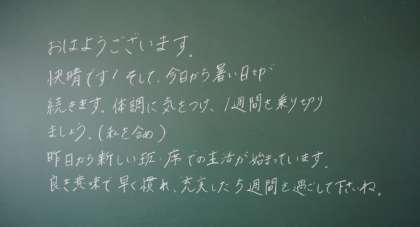 おはようございます。
快晴です!そして、今日から暑い日々が
続きます。体調に気をつけ、1週間を乗り切り
ましょう。(私を含め)
昨日から新しい班・席での生活が始まっています。
良き意味で早く慣れ、充実した5週間を過ごして下さいね。